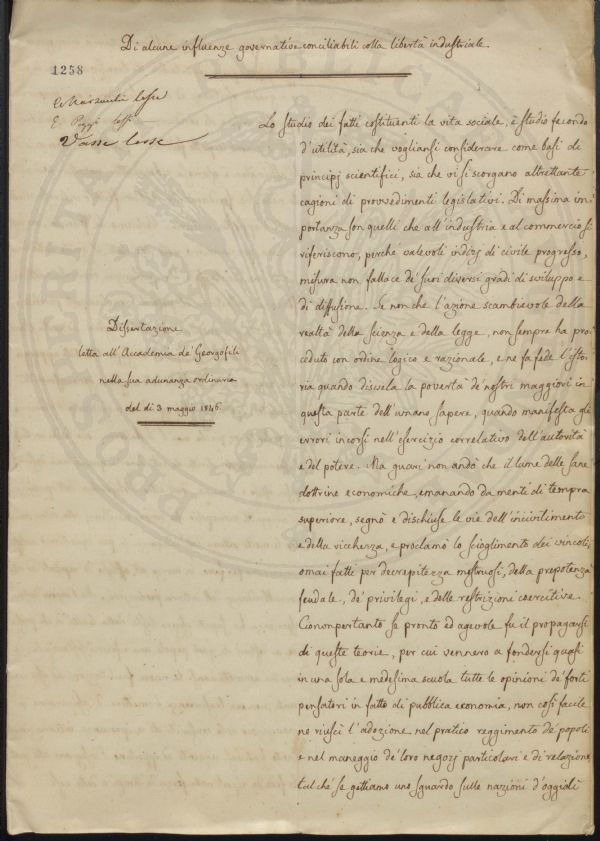 Di alcune influenze governative conciliabili colla libertà industriale.
1258
lesse
E. Poggi lesse
lesse
Dissertazione
letta all'Accademia de' Georgofili
nella sua adunanza ordinaria
del dì 3 maggio 1846
Lo studio dei fatti costituenti la vita sociale, è studio fecondo
d'utilità, sia che vogliansi considerare come basi di
principj scientifici, sia che vi si scorgano altrettante
cagioni di provvedimenti legislativi. Di massima im
portanza son quelli che all'industria e al commercio si
riferiscono, perché valevoli indizj di civile progresso,
misura non fallace de' suoi diversi gradi di sviluppo e
di diffusione. Se non che l'azione scambievole della
realtà della scienza e della legge, non sempre ha pro
ceduto con ordine logico e razionale, e ne fa fede l'isto
ria quando disvela la povertà de' nostri maggiori in
questa parte dell'umano sapere, quando manifesta gli
errori incorsi nell'esercizio correlativo dell'autorità
e del potere. Ma guari non andò che il lume delle sane
dottrine economiche, emanando da menti di tempra
superiore, segnò e dischiuse le vie dell'incivilimento
e della ricchezza, e proclamò lo scioglimento dei vincoli,
omai fatti per decrepitezza mostruosi, della prepotenza
feudale, de' privilegi, e delle restrizioni coercitive.
Ciononpertanto se pronto ed agevole fu il propagarsi
di queste teorie, per cui vennero a fondersi quasi
in una sola e medesima scuola tutte le opinioni de' forti
pensatori in fatto di pubblica economia, non così facile
ne riuscì l'adozione nel pratico reggimento de' popoli
e nel maneggio de' loro negozj particolari e di relazione,
talché se gettiamo uno sguardo sulle nazioni d'oggidì